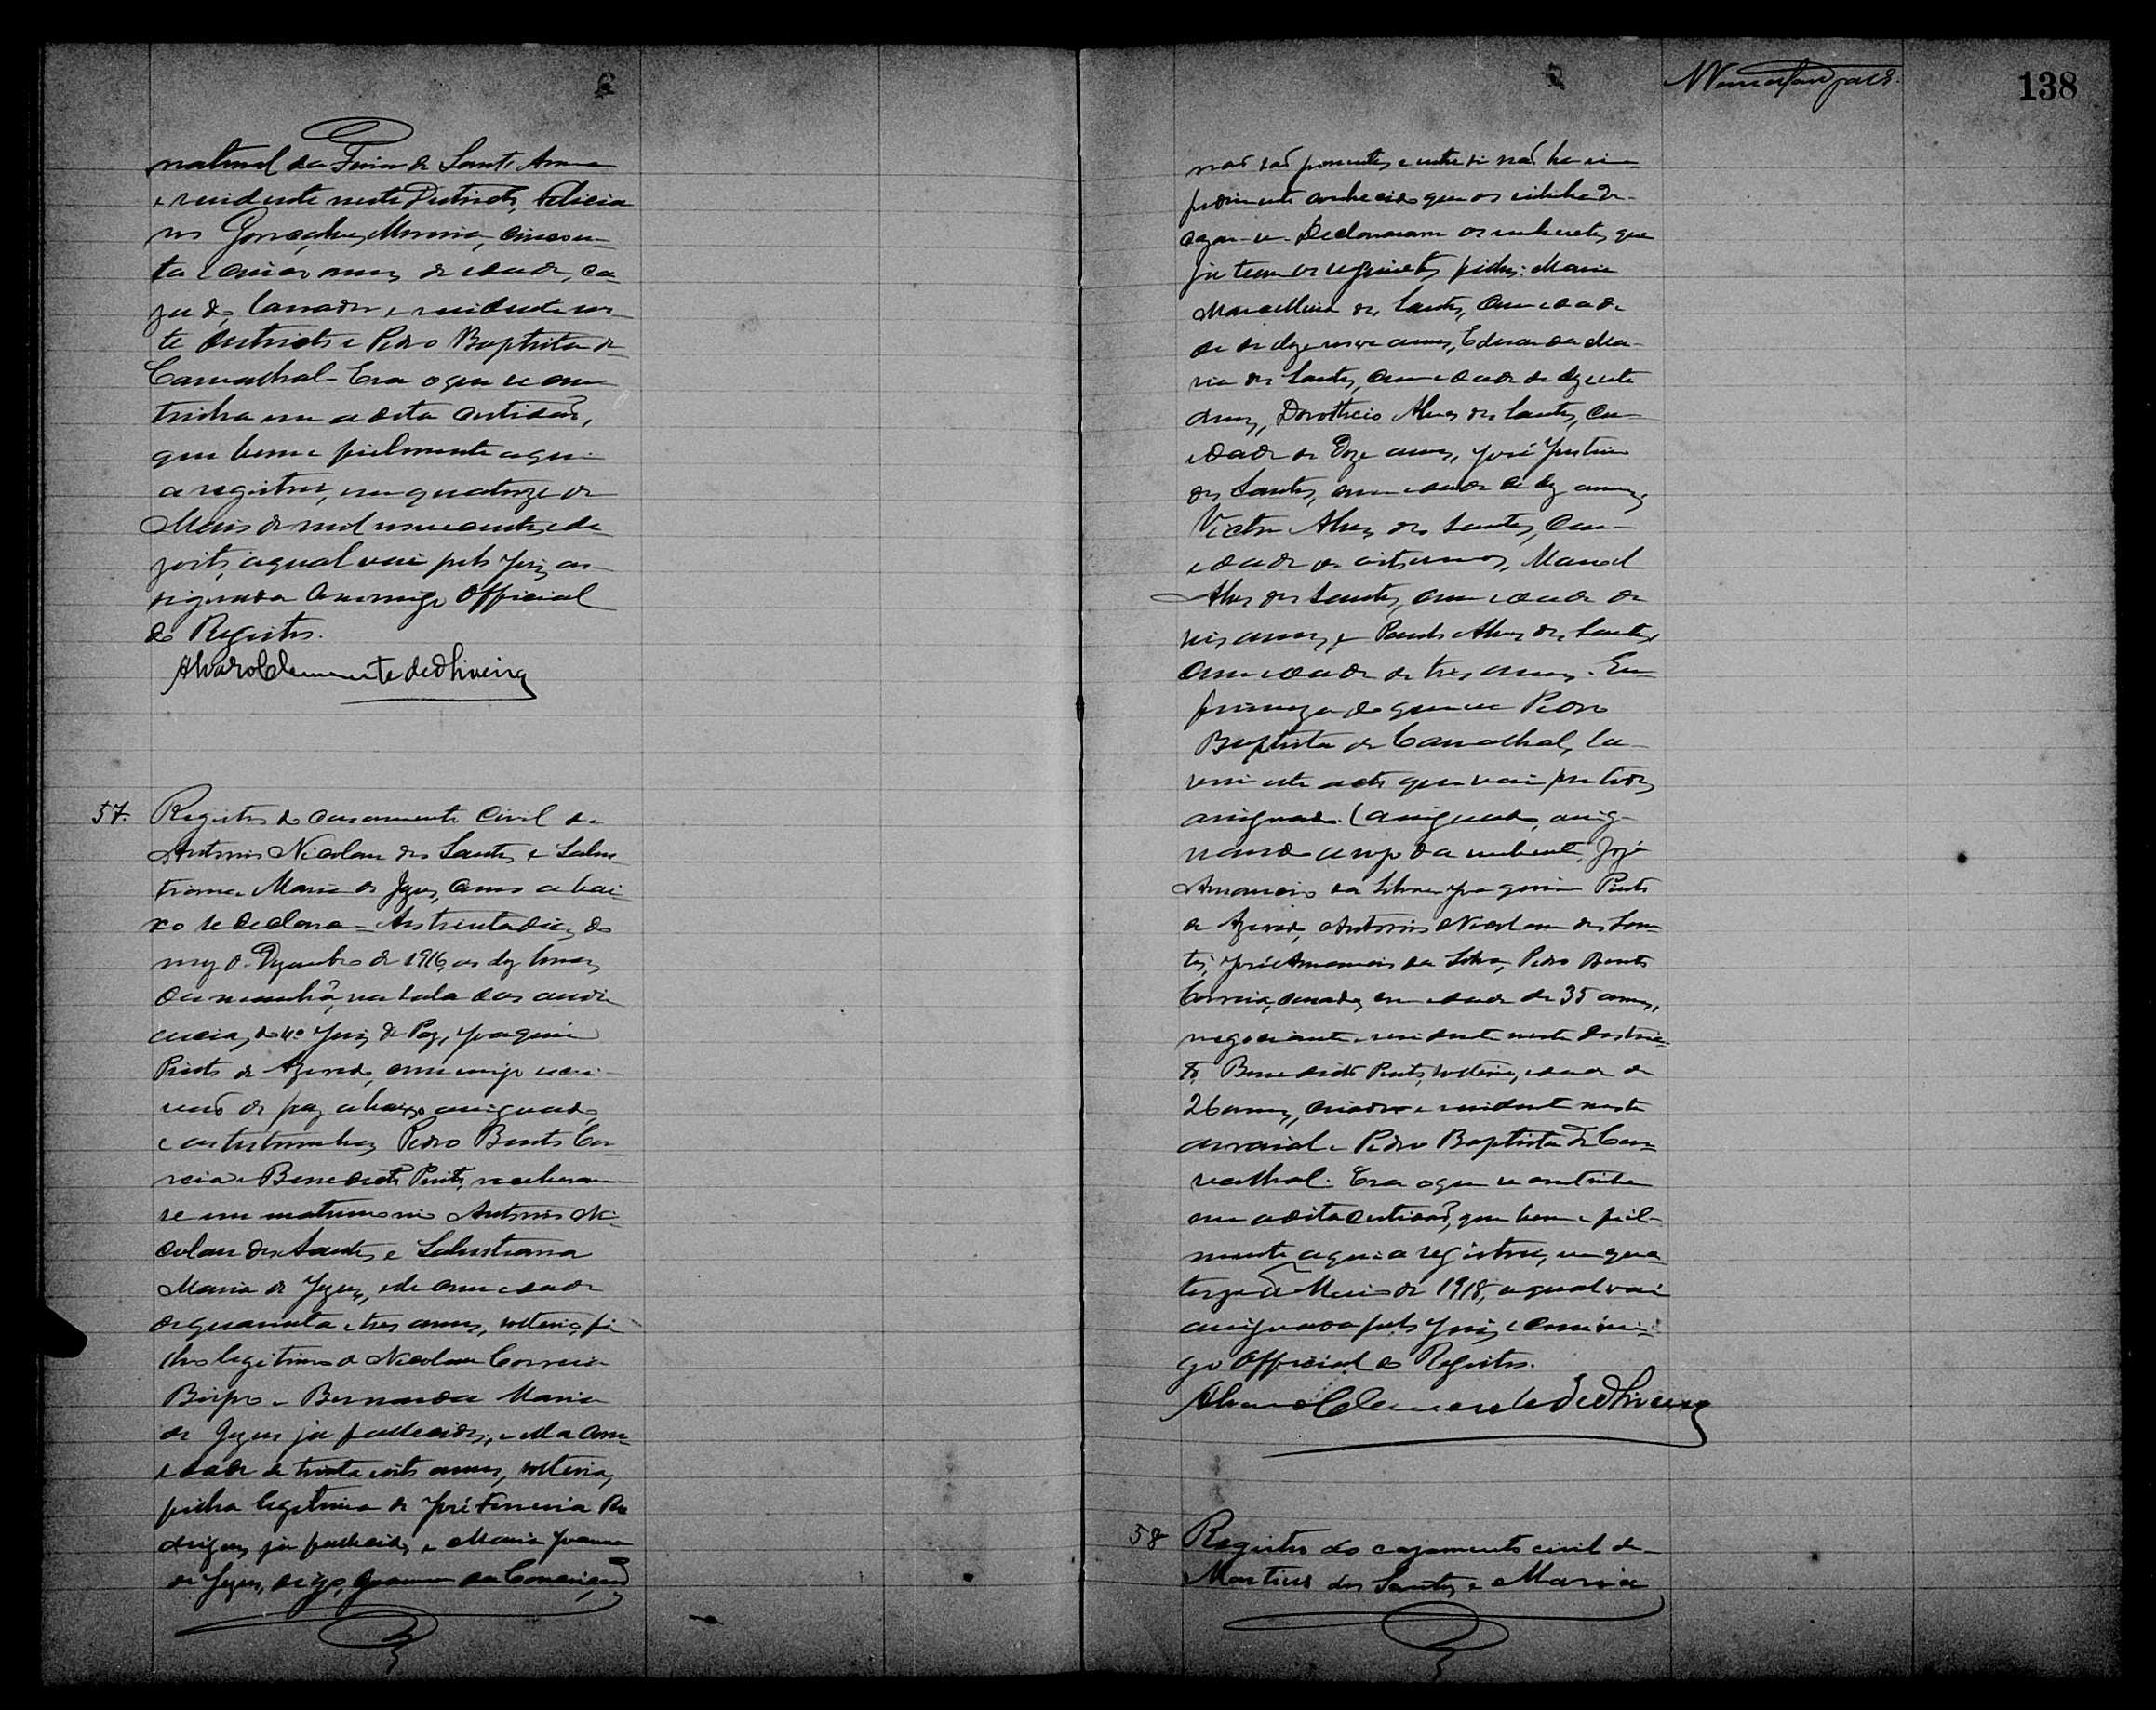 natural da Feira de Sant'Anna
e residente neste Districto, Felicia
no Gonçalves Moreira, cincoen-
ta e cinco annos de edade, ca-
zado, lavrador e residente nes-
te districto e Pedro Baptista de
Carvalhal - Era o que se con
tinha em a dita certidão,
que bem e fielmente aqui
a registrei, em quatorze de
Maio de mil novecentos e de
zoito, a qual vai pelo Juiz as-
signada commigo Official
do Registro.
Alvaro Clemente de Oliveira
57. Registro do casamento Civil de
Antonio Nicolau dos Santos e Salus
tiana Maria de Jezus, como abai
xo se declara - Aos trinta dias do
mez de Dezembro de 1916, as dez horas
da manhã, na sala das audi
encias, do 4º Juiz de Paz, Joaquim
Pinto de Azevedo, commigo escri-
vão de paz abaixo assignado,
e as testemunhas Pedro Bento Cor
reia e Benedicto Pinto, receberam
se em matrimonio Antonio Ni-
colau dos Santos e Salustiana
Maria de Jezus, ele com edade
de quarenta e tres annos, solteiro, fi
lho legitimo de Nicolau Correia
Bispo e Bernarda Maria
de Jezus já fallecidos, e ella com
edade de trinta e oito annos, solteira,
filha legitima de José Ferreira Ro
drigues, já fallecido, e Maria Joanna
de Jezus, digo, Joanna da Conceição,
138
não são parentes e entre si não ha im-
pedimento conhecido que os inhiba de
cazar-se. Declararam os nubentes, que
já tem os seguintes filhos: Maria
Marcellina dos Santos, com edade
de dezenove annos, Eduarda Ma-
ria dos Santos, com edade de dezesete
annos, Dorotheio Alves dos Santos, com
edade de doze annos, José Justino
dos Santos, com edade de dez annos,
Victor Alves dos Santos, com
edade de oito annos, Manoel
Alves dos Santos, com edade de
seis annos, e Paulo Alves dos Santos
com edade de tres annos. Em
firmeza do que eu Pedro
Baptista de Carvalhal, la-
vrei este acto que vai por todos
assignado. (assignado, assig-
nando a rogo da nubente, José
Amancio da Silva, Joaquim Pinto
de Azevedo, Antonio Nicolau dos San-
tos, José Amancio da Silva, Pedro Bento
Correia, casado, com edade de 35 annos,
negociante e residente neste distric-
to, Benedicto Pinto, solteiro, edade de
26 annos, criador e residente neste
arraial e Pedro Baptista de Car-
valhal. Era o que se continha
em a dita certidão, que bem e fiel-
mente aqui a registrei, em qua-
torze de Maio de 1918, a qual vai
assignada pelo Juiz e commi-
go Official do Registro.
Alvaro Clemente de Oliveira
58 Registro do cazamento civil de
Martins dos Santos e Maria